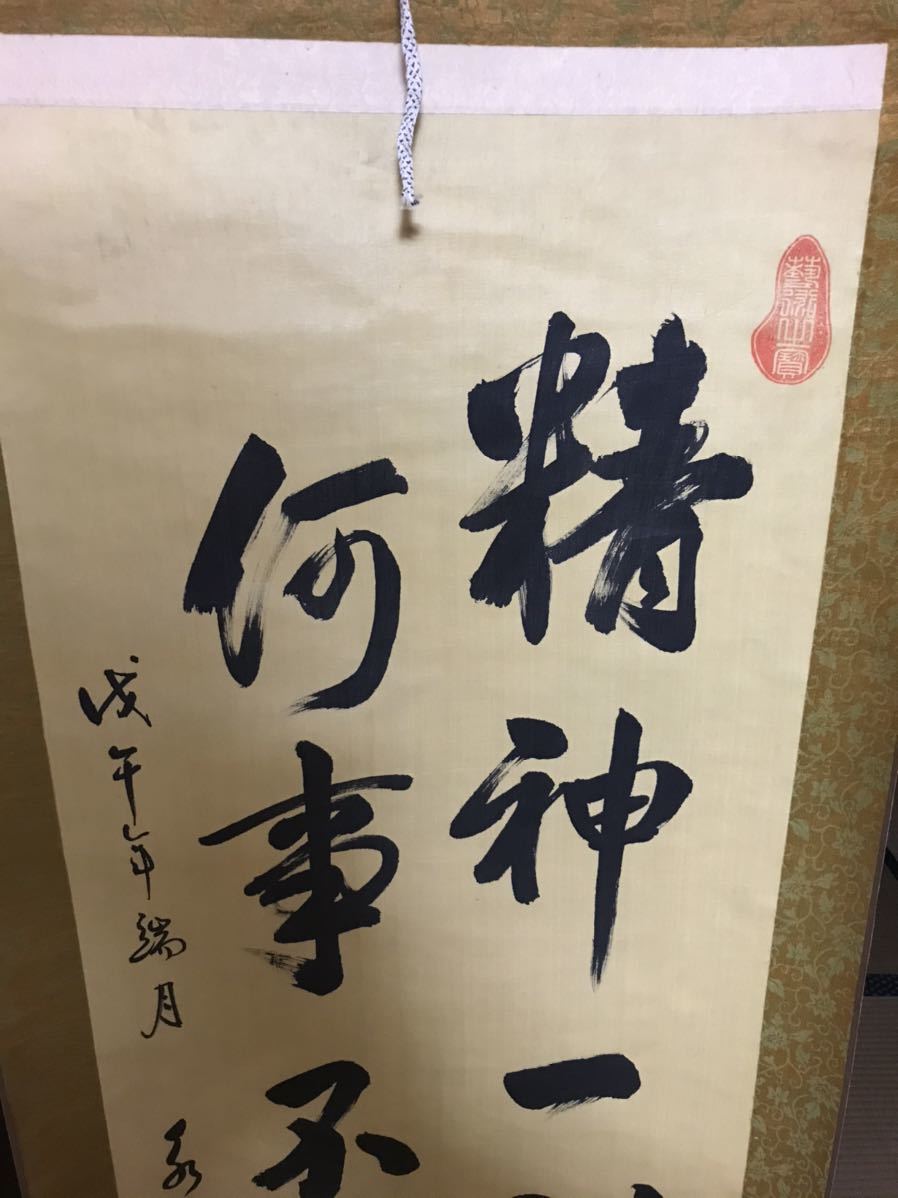 精神一
何事不
戊午年端月